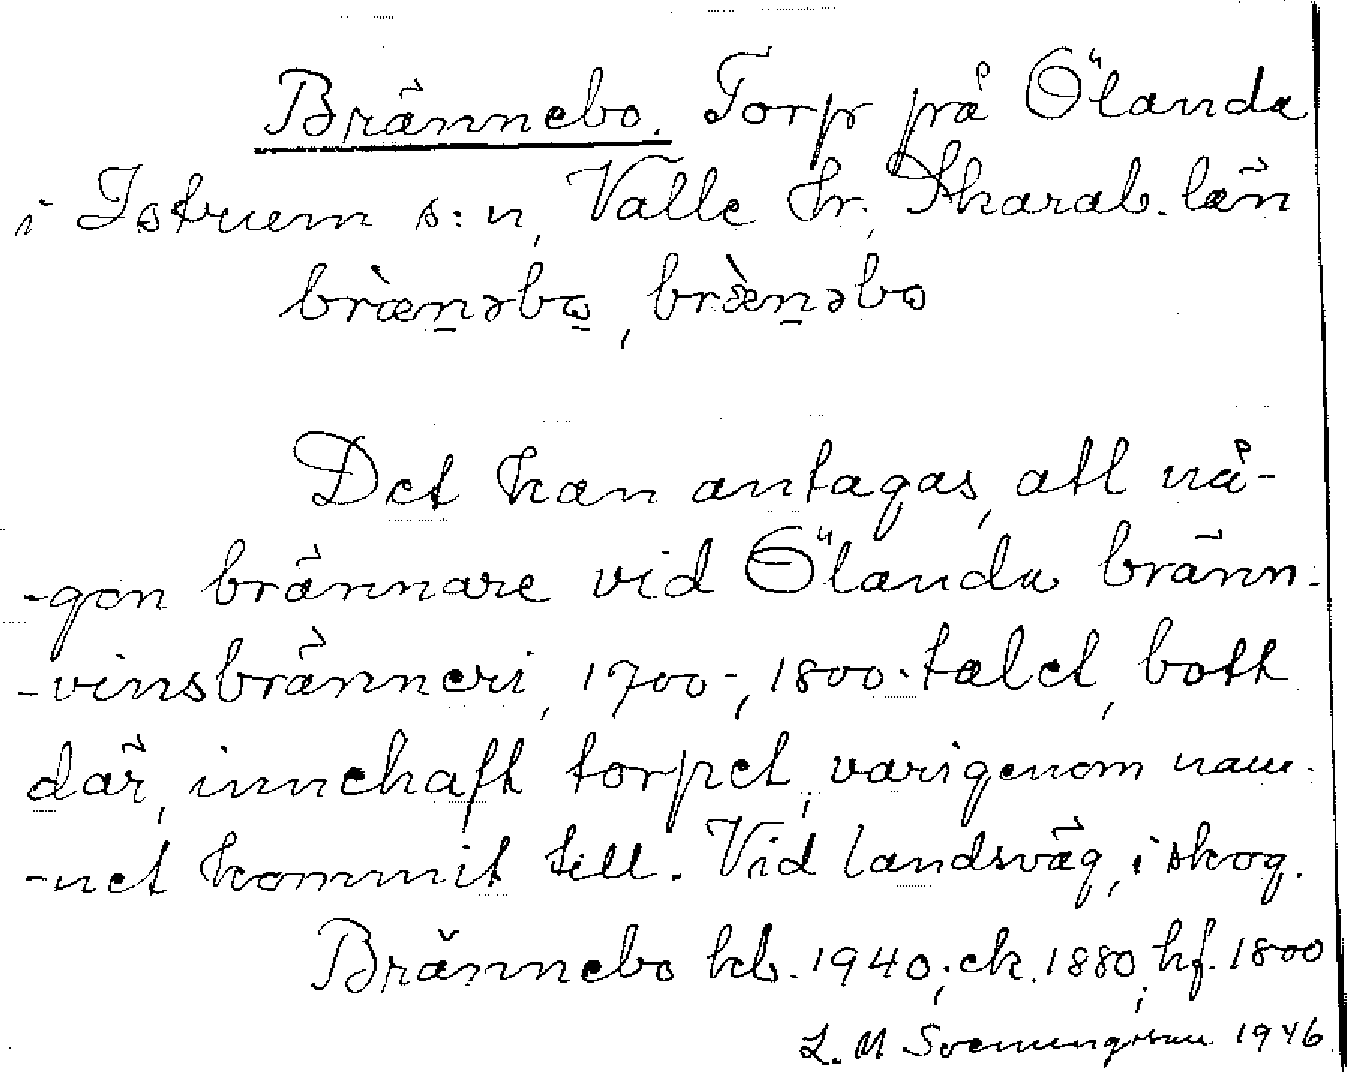 Brännebo. Torp på Ölanda
i Istrum s:n, Valle hr, Skarab. län
bræ̀n̠əbo̠, bræ̀n̠əbo
Det kan antagas, att nå-
-gon brännare vid Ölanda bränn-
-vinsbränneri, 1700-, 1800-talet, bott
där, innehaft torpet, varigenom nam-
-net kommit till. Vid landsväg, i skog.
Brännebo kb. 1940; ek. 1880; hf. 1800
L. M Svenungsson 1946